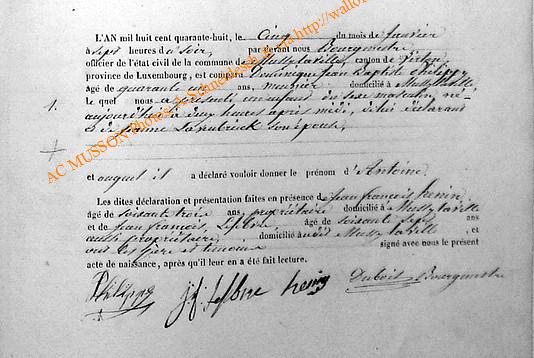 L'AN mil huit cent quarante-huit, le Cinq du mois de Janvier
à sept heures du soir, par devant nous Bourgmestre
officier de l'état civil de la commune de Mussy la ville, canton de Virton,
province de Luxembourg, est comparu Dominique Jean Baptiste Philippe
âgé de quarante un ans, meunier domicilié à Mussy la ville
1. Le quel nous a présenté un enfant du sexe masculin, né
aujourd'hui à deux heures après midi, de lui déclarant
& de son épouse,
et auquel il a déclaré vouloir donner le prénom d'Antoine.
Les dites déclaration et présentation faites en présence de Jean françois henin,
âgé de soixante trois ans, propriétaire domicilié à Mussy la ville
et de Jean françois Lefebvre, âgé de soixante sept ans
aussi propriétaire, domicilié audit Mussy la ville, et
ont les père et témoins signé avec nous le présent
acte de naissance, après qu'il leur en a été fait lecture.
Philippe j.f. lefbvre henin Dubois Bourgmestre
AC MUSSON Photos